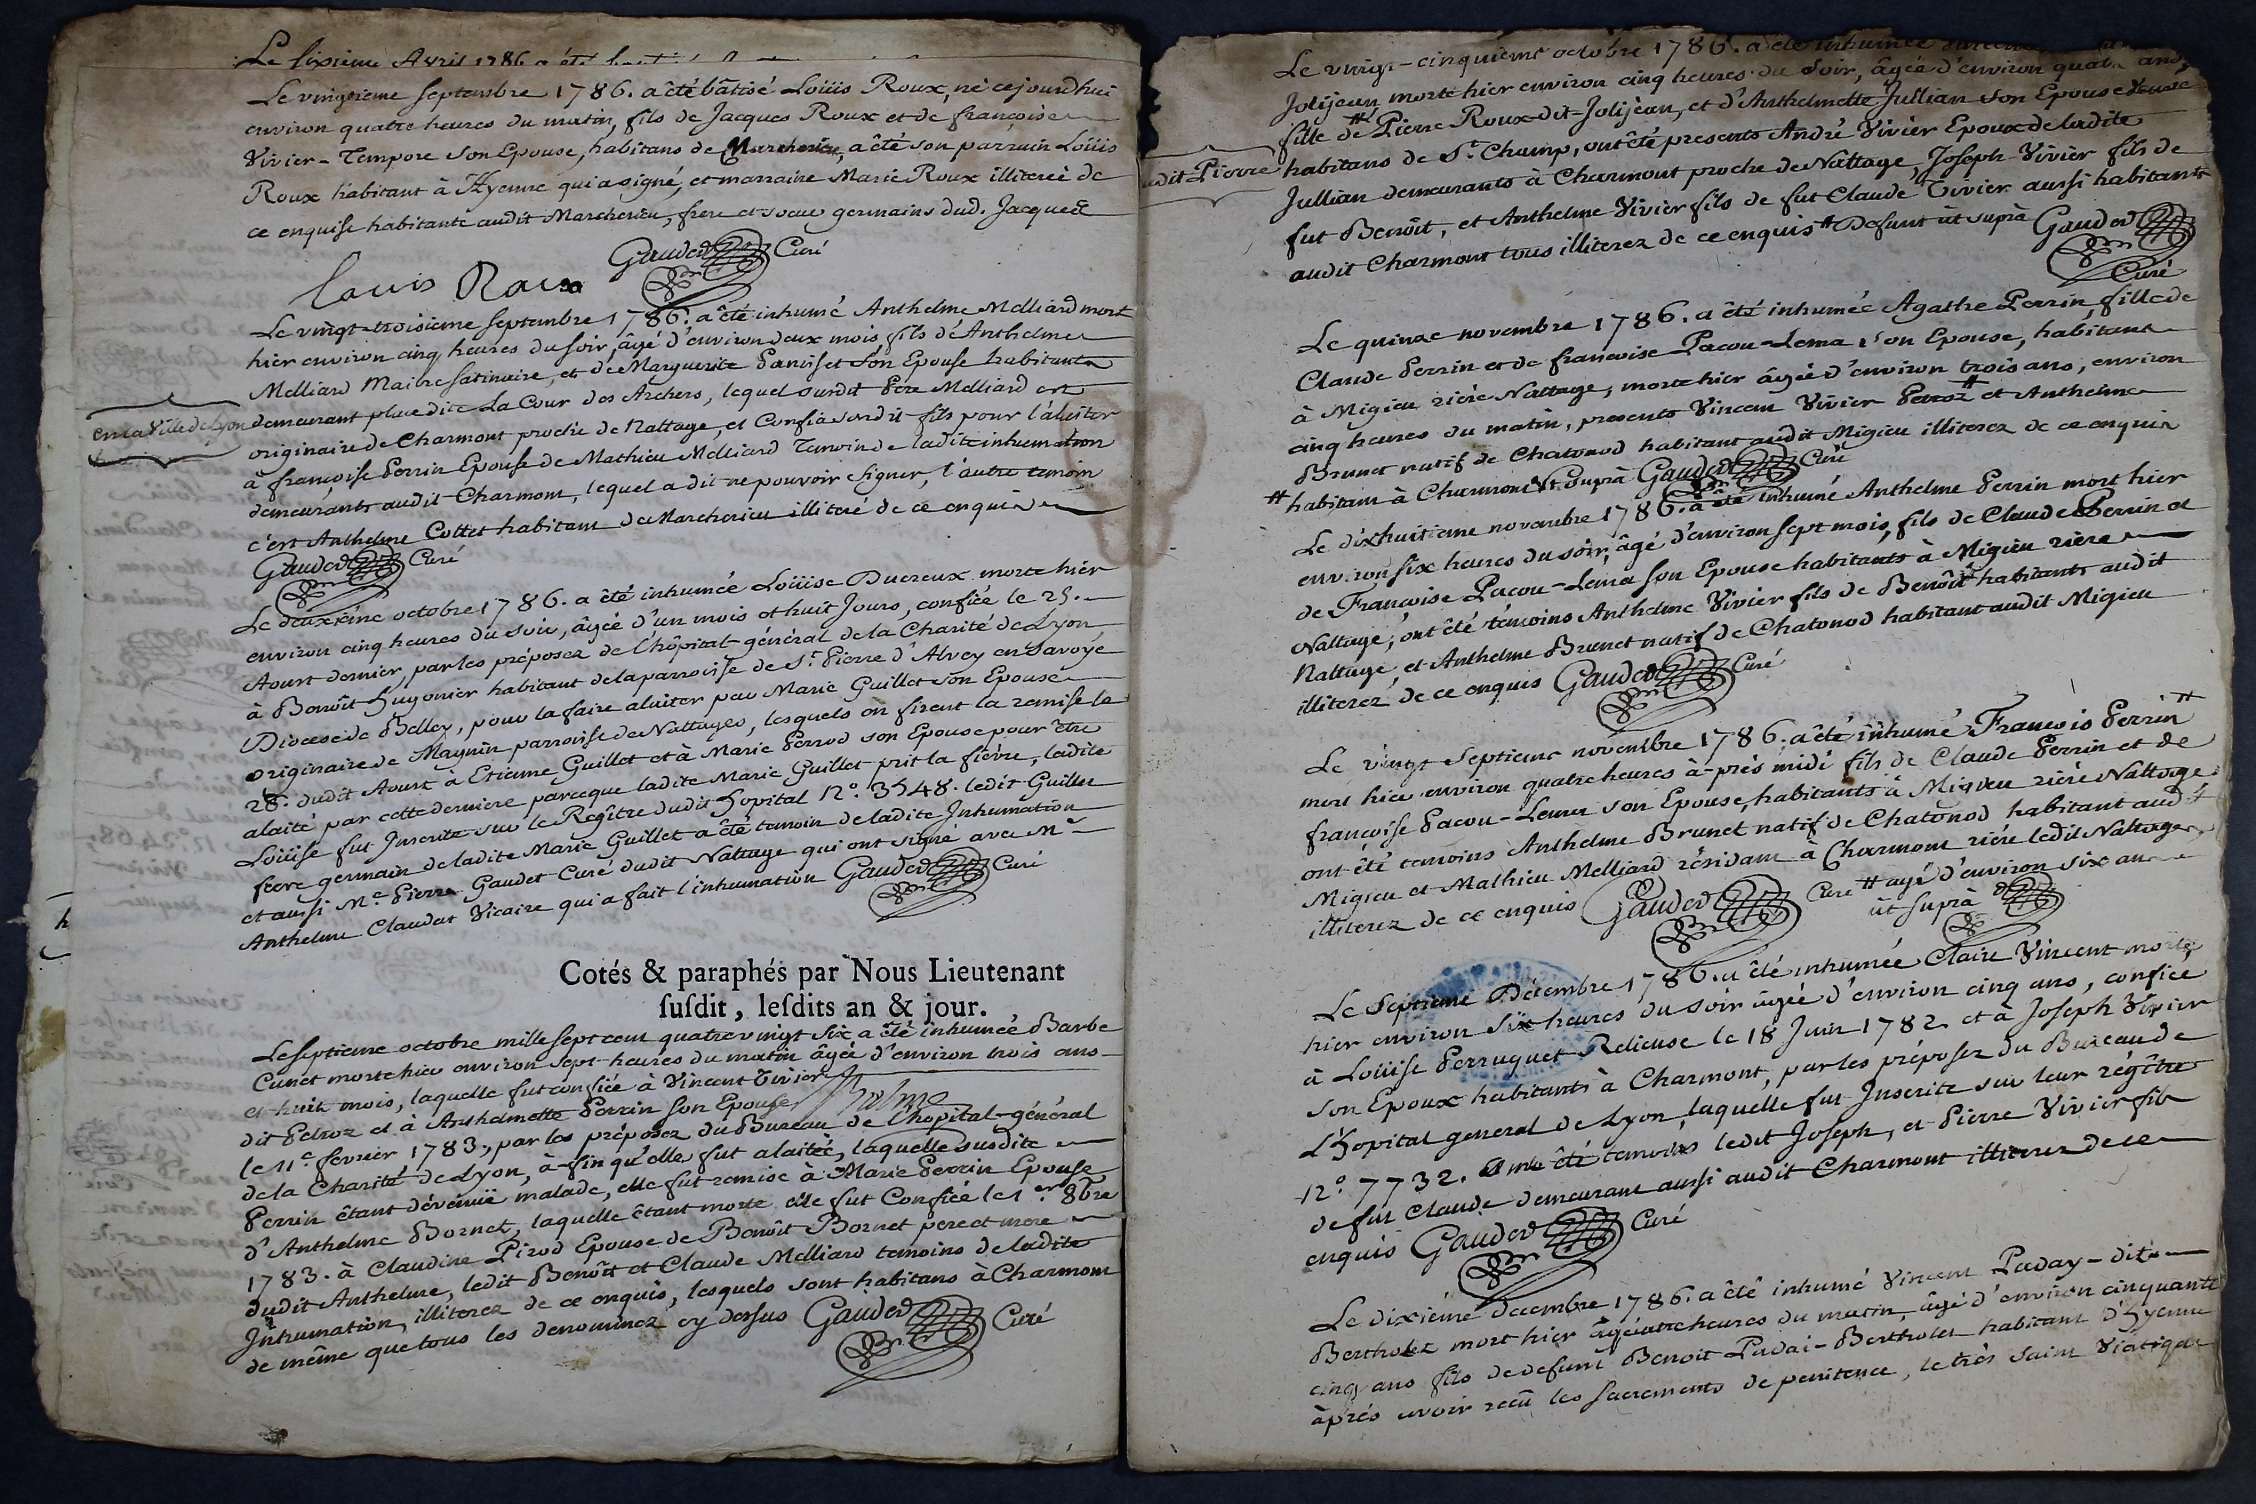 Le sixieme Avril 1786 a été
Le vingtieme septembre 1786. a êté bâtisé Loüis Roux, né cejourdhui
environ quatre heures du matin, fils de Jacques Roux et de françoise
Vivier-Tempore son Epouse, habitans de Marcherieu, a êté son parrain Loüis
Roux habitant à Hyenne qui a signé, et marraine Marie Roux illiterée de
ce enquise habitante audit Marcherieu, frere et soeur germains dud. Jacques
Gaudet Curé
Louis Roux
Le vingt-troisieme septembre 1786. a êté inhumé Anthelme Melliard mort
hier environ cinq heures du soir, âgé d'environ deux mois, fils d'Anthelme
Melliard Maitre satinaire, et de Marguerite Danviset son Epouse habitants
en la Ville de Lyon
demeurant place dite La Cour des Archers, lequel susdit Pere Melliard est
originaire de Charmont proche de Nattage, et Confia sondit fils pour l'alaiter
à françoise Perrin Epouse de Mathieu Melliard Temoin de ladite inhumation
demeurants audit Charmont, lequel a dit ne pouvoir signer, l'autre temoin
c'est Anthelme Collet habitant de Marcherieu illiteré de ce enquis
Gaudet Curé
Le deuxiéme octobre 1786. a êté inhumée Loüise Ducreux morte hier
environ cinq heures du soir, âgée d'un mois et huit Jours, confiée le 25.
Aoust dernier, par les préposez de l'hôpital général de la Charité de Lyon
à Benoît Huyonier habitant de la parroisse de St. Pierre d'Alvey en Savoye
Diocese de Belley, pour la faire alaiter par Marie Guillet son Epouse
originaire de Magnin parroisse de Nattages, lesquels en firent la remise le
28. dudit Aoust à Etienne Guillet et à Marie Perrod son Epouse pour être
alaité par cette derniere parceque ladite Marie Guillet prit la fiévre, ladite
Loüise fut Inscrite sur le Regître dudit hopital N°. 3548. ledit Guillet
frere germain de ladite Marie Guillet a êté temoin de ladite Inhumation
et aussi Me. Pierre Gaudet Curé dudit Nattage qui ont signé avec Mr.
Anthelme Claudat Vicaire qui a fait l'inhumation Gaudet Curé
Cotés & paraphés par Nous Lieutenant
susdit, lesdits an & jour.
Le septieme octobre mille sept cent quatre vingt six a êté inhumée Barbe
Cunet morte hier environ sept heures du matin âgée d'environ trois ans
et huit mois, laquelle fut confiée à Vincent Vivier
dit Petroz et à Anthelmette Perrin son Epouse
le 11e. fevrier 1783, par les préposez du Bureau de l'hopital-général
de la Charité de Lyon, à-fin qu'elle fut alaitée, laquelle susdite
Perrin êtant dévenuë malade, elle fut remise à Marie Perrin Epouse
d'Anthelme Bornet, laquelle êtant morte elle fut Confiée le 1er. 8bre
1783. à Claudine Pirod Epouse de Benoît Bornet pere et mere
dudit Anthelme, ledit Benoît et Claude Melliard temoins de ladite
Inhumation, illiterez de ce enquis, lesquels sont habitans à Charmont
de même que tous les denommez cy dessus Gaudet Curé
Le vingt-cinquieme octobre 1786. a êté inhumée
Jolijean morte hier environ cinq heures du soir, âgée d'environ quatre ans,
fille de # Pierre Roux-dit-Jolijean, et d'Anthelmette Jullian son Epouse
udit Pierre
habitans de St. Champ, ont êté presents André Vivier Epoux de ladite
Jullian demeurants à Charmont proche de Nattage, Joseph Vivier fils de
fut Benoît, et Anthelme Vivier fils de fut Claude Vivier aussi habitants
audit Charmont tous illiterez de ce enquis # Defunt ut suprà Gaudet
Curé
Le quinze novembre 1786. a êté inhumée Agathe Perrin, fille de
Claude Perrin et de françoise Pacou-Lema son Epouse, habitans
à Migieu riére Nattage, morte hier âgée d'environ trois ans, environ
cinq heures du matin, presents Vincent Vivier Petroz # et Anthelme
Brunet natif de Chatonod habitant audit Migieu illiterez de ce enquis
# habitant à Charmont ut suprà Gaudet Curé
Le dixhuitieme novembre 1786. a êté inhumé Anthelme Perrin mort hier
environ six heures du soir, âgé d'environ sept mois, fils de Claude Perrin et
de Françoise Pacou-Lema son Epouse habitants à Migieu riére
Nattage, ont êté témoins Anthelme Vivier fils de Benoît habitants audit
Nattage, et Anthelme Brunet natif de Chatonod habitant audit Migieu
illiterez de ce enquis Gaudet Curé
Le vingt septieme novembre 1786. a êté inhumé François Perrin #
mort hier environ quatre heures à-prés midi fils de Claude Perrin et de
françoise Pacou-Lema son Epouse, habitants à Migieu riére Nattage
ont êté temoins Anthelme Brunet natif de Chatonod habitant audit
Migieu et Mathieu Melliard résidant à Charmont riére ledit Nattage,
illiterez de ce enquis Gaudet Curé # agé d'environ six ans
ut suprà
Le septieme Décembre 1786. a êté inhumée Claire Vincent morte
hier environ six heures du soir âgée d'environ cinq ans, confiée
à Loüise Perruquet Relieuse le 18 Juin 1782 et à Joseph Vivier
son Epoux habitants à Charmont, par les préposez du Bureau de
l'Hopital general de Lyon, laquelle fut Inscrite sur leur régître
N°. 7732. ont êté temoins ledit Joseph, et Pierre Vivier fils
de fut Claude demeurant aussi audit Charmont illiterez de ce
enquis Gaudet Curé
Le dixiéme decembre 1786. a êté inhumé Vincent Paday-dit
Bertholet mort hier à quatre heures du matin, âgé d'environ cinquante
cinq ans fils de defunt Benoit Padai-Bertholet habitant d'Hyenne
àprés avoir reçû les sacrements de penitence, le trés saint Viatique